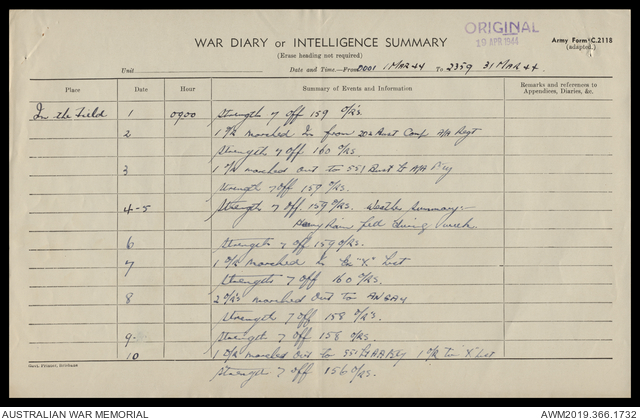 ORIGINAL
19 APR 1944
WAR DIARY or INTELLIGENCE SUMMARY
Army Form C.2118
(adapted.)
(Erase heading not required)
Unit Date and Time.—From 0001 1 MAR 44 To 2359 31 MAR 44.
Place Date Hour Summary of Events and Information Remarks and references to
Appendices, Diaries, &c.
In the Field 1 0900 Strength 7 Off 159 O/Rs.
2 1 O/R marched In from Aust Comp A/A Regt
Strength 7 Off 160 O/Rs.
3 1 O/R marched out to Aust Lt A/A Bty
Strength 7 Off 159 O/Rs.
4-5 Strength 7 Off 159 O/Rs. Weather Summary:-
Heavy Rain fell during week.
6 Strength 7 Off 159 O/Rs.
7 1 O/R marched In Ex "X" List
Strength 7 Off 160 O/Rs.
8 2 O/R's marched Out to ANGAU
Strength 7 Off 158 O/R's
9 Strength 7 Off 158 O/Rs.
10 1 O/R marched out to Lt AA Bty 1 O/R to "X" List
Strength 7 Off 156 O/Rs.
Govt. Printer, Brisbane
AUSTRALIAN WAR MEMORIAL
AWM2019.366.1732